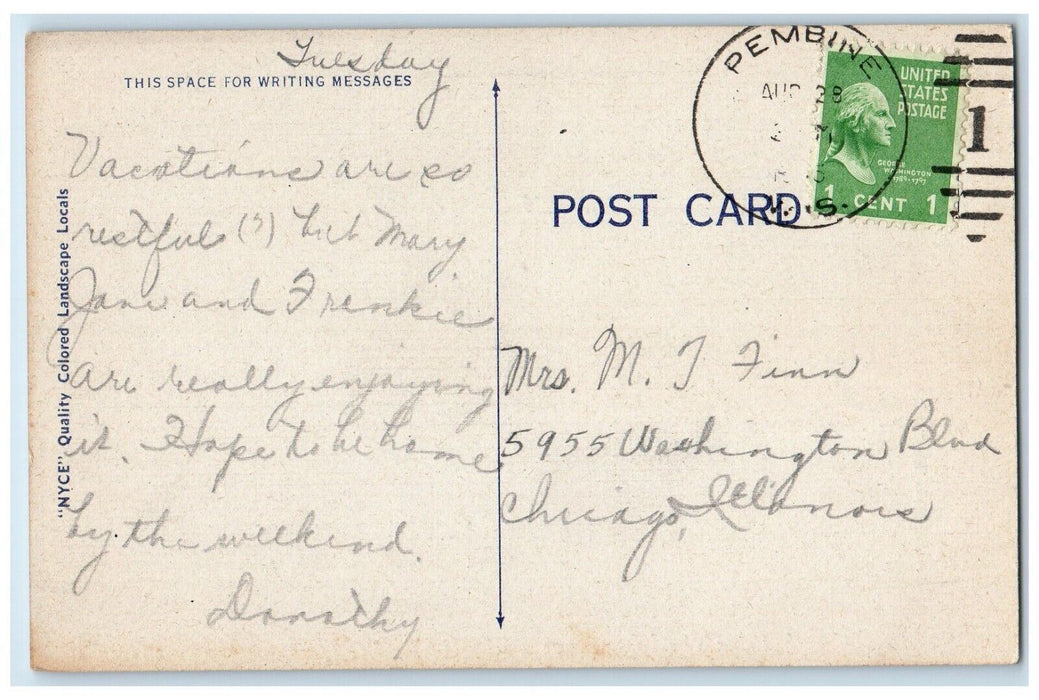 Tuesday
THIS SPACE FOR WRITING MESSAGES
Vacations are so
restful (?) but Mary
Jane and Frankie
are really enjoying
it. Hope to be home
by the weekend.
Dorothy
"NYCE" Quality Colored Landscape Locals
POST CARD
Mrs. M. J Finn
5955 Washington Blvd
Chicago, Illinois
PEMBINE
AUG 28
WIS.
1
UNITED
STATES
POSTAGE
GEORGE
WASHINGTON
1789-1797
1 CENT 1